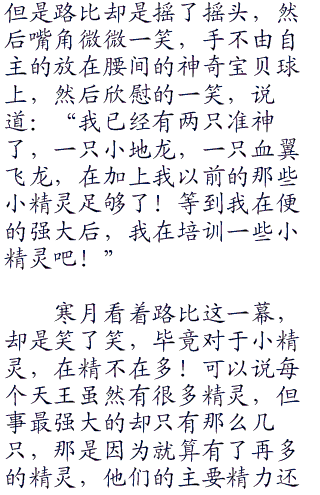 但是路比却是摇了摇头，然
后嘴角微微一笑，手不由自
主的放在腰间的神奇宝贝球
上，然后欣慰的一笑，说
道：“我已经有两只准神
了，一只小地龙，一只血翼
飞龙，在加上我以前的那些
小精灵足够了！等到我在便
的强大后，我在培训一些小
精灵吧！”
寒月看着路比这一幕，
却是笑了笑，毕竟对于小精
灵，在精不在多！可以说每
个天王虽然有很多精灵，但
事最强大的却只有那么几
只，那是因为就算有了再多
的精灵，他们的主要精力还